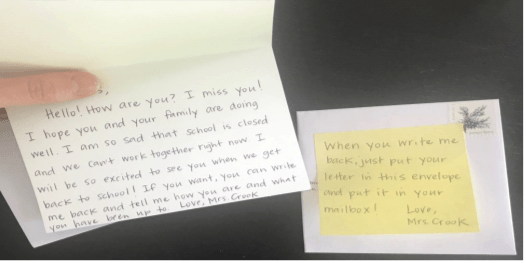 s,
Hello! How are you? I miss you!
I hope you and your family are doing
well. I am so sad that school is closed
and we can't work together right now. I
will be so excited to see you when we get
back to school! If you want, you can write
me back and tell me how you are and what
you have been up to. Love, Mrs Crook
When you write me
back, just put your
letter in this envelope
and put it in your
mailbox! Love,
Mrs. Crook